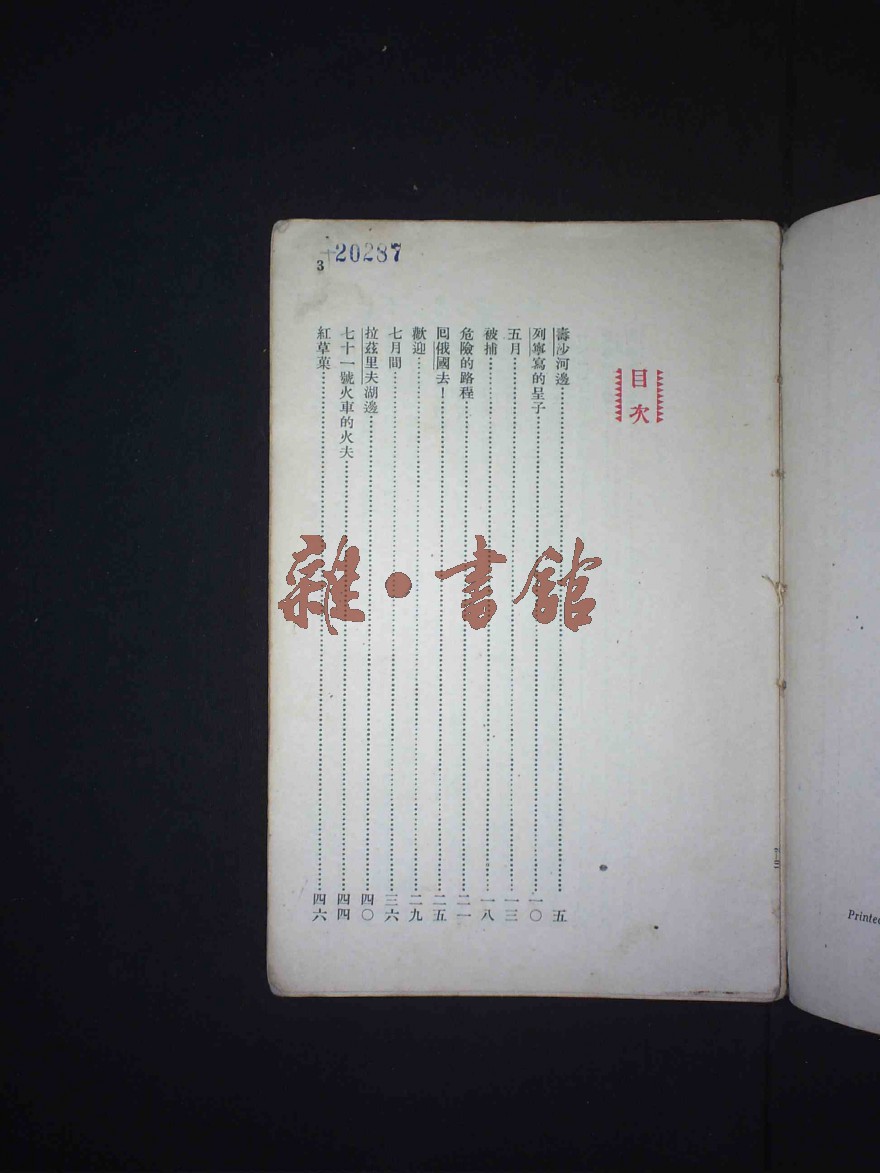 目次
壽沙河邊……五
列寧寫的呈子……一〇
五月……一三
被捕……一八
危險的路程……二一
囘俄國去！……二五
歡迎……二九
七月間……三六
拉茲里夫湖邊……四〇
七十一號火車的火夫……四四
紅草菓……四六
3
20287
雜·書館
Printed